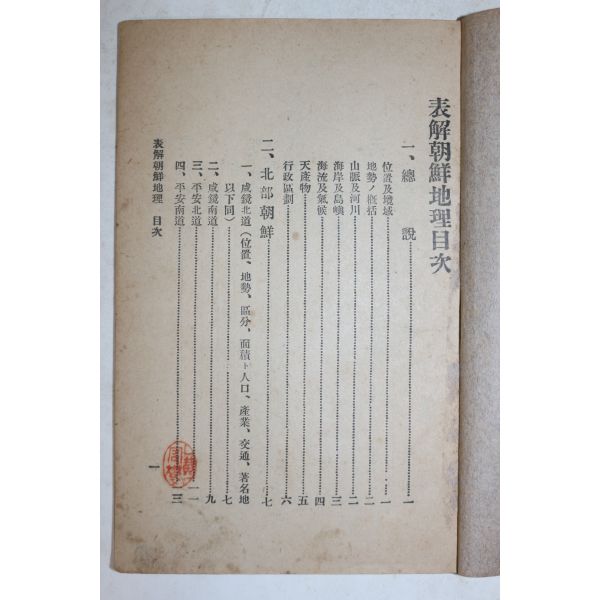 表解朝鮮地理目次
一、總說……一
位置及境域……一
地勢ノ槪括……二
山脈及河川……二
海岸及島嶼……三
海流及氣候……四
天產物……五
行政區劃……六
二、北部朝鮮……七
一、咸鏡北道（位置、地勢、區分、面積ト人口、產業、交通、著名地
以下同）……七
二、咸鏡南道……九
三、平安北道……一一
四、平安南道……一三
表解朝鮮地理 目次
一